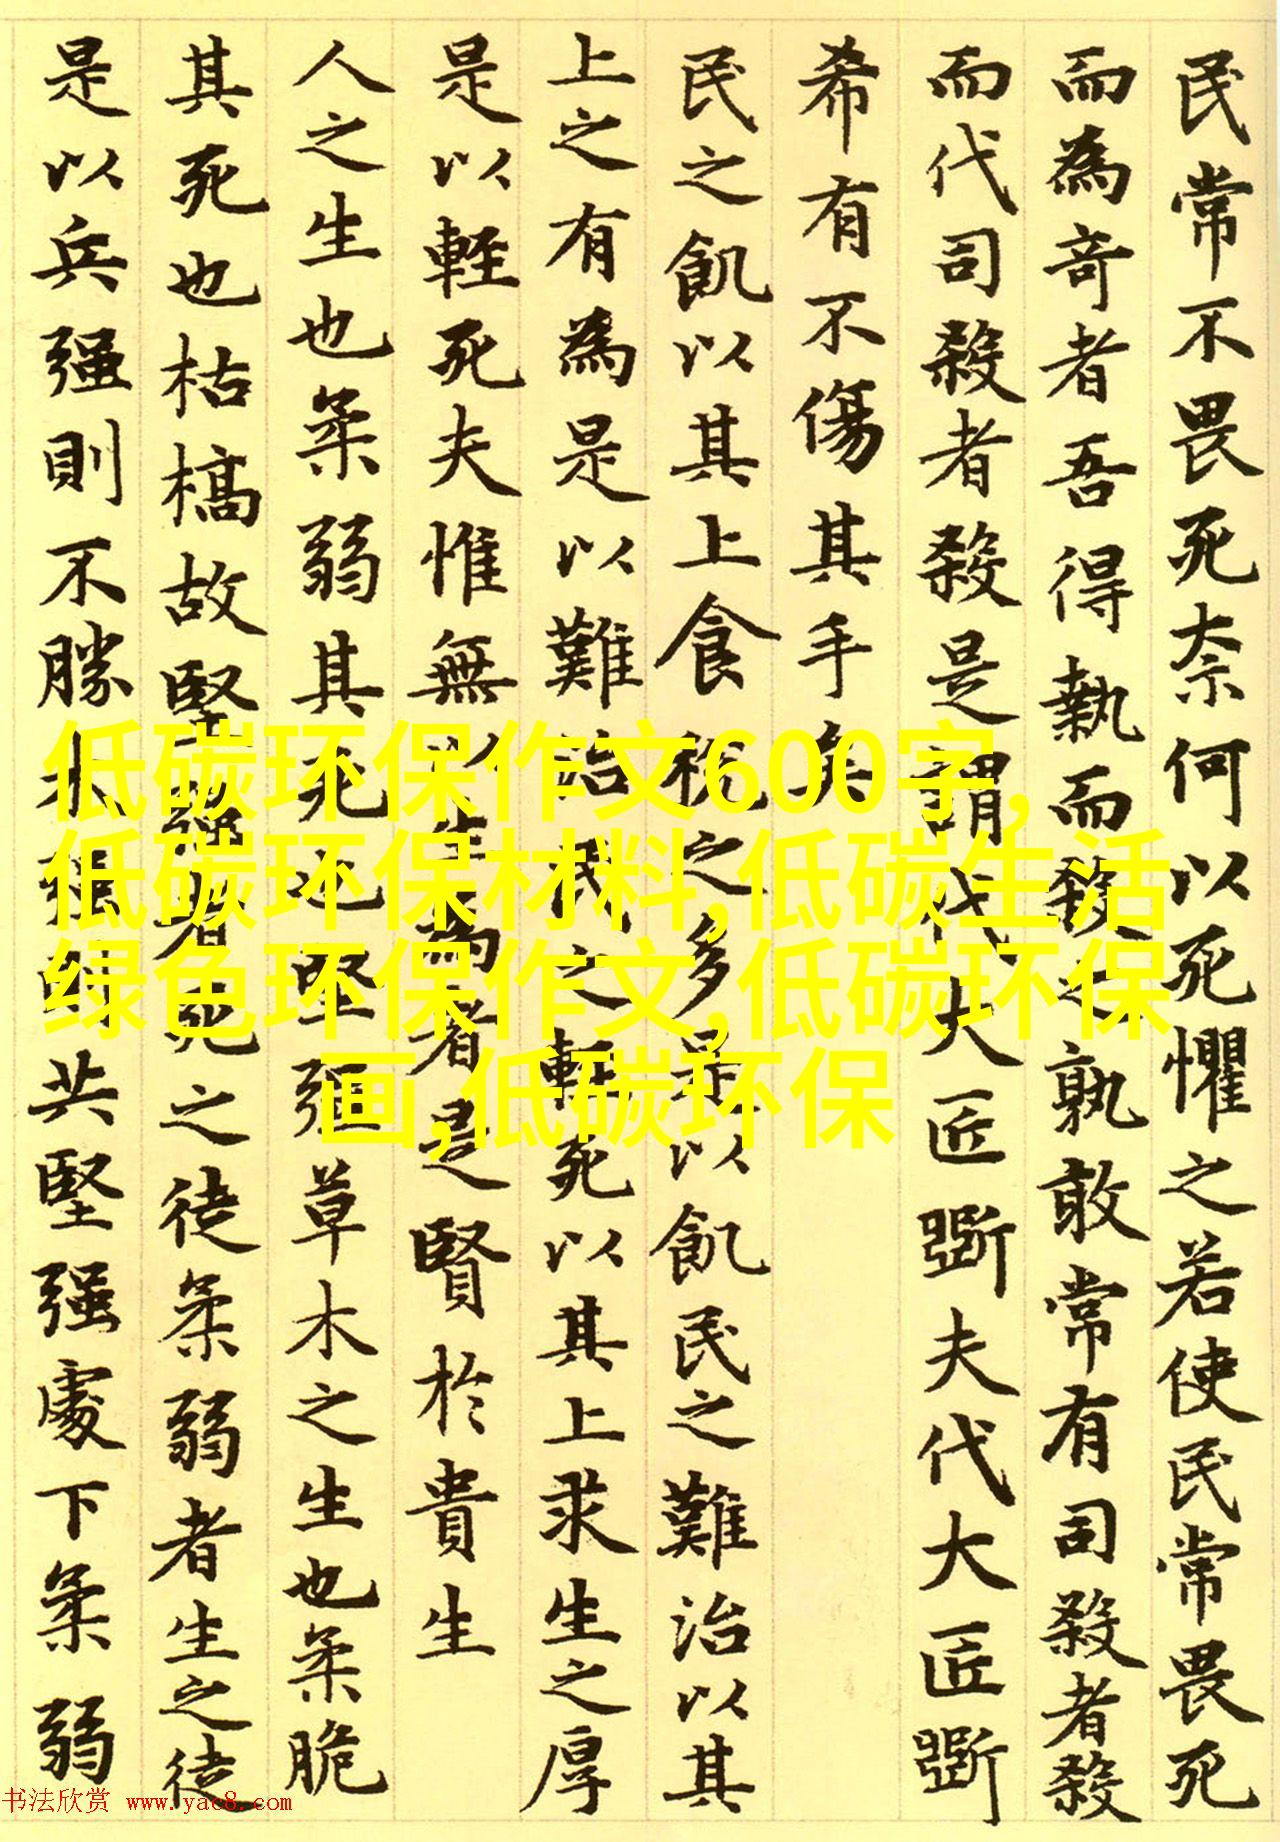 民常不畏死奈何以死懼之若使民常畏死
而為奇者吾得執而殺之孰敢常有司殺者殺
而代司殺者殺是謂代大匠斲夫代大匠斲
希有不傷其手矣
民之飢以其上食稅之多是以飢民之難治以其
上之有為是以難治民之輕死以其上求生之厚
是以輕死夫惟無以生為者是賢於貴生
人之生也柔弱其死也堅强草木之生也柔脆
其死也枯槁故堅强者死之徒柔弱者生之徒
是以兵强則不勝木强則共堅强處下柔弱
低碳环保作文600字,
低碳环保材料,低碳生活
绿色环保作文,低碳环保
画,低碳环保
书法欣赏 www.yac8.com